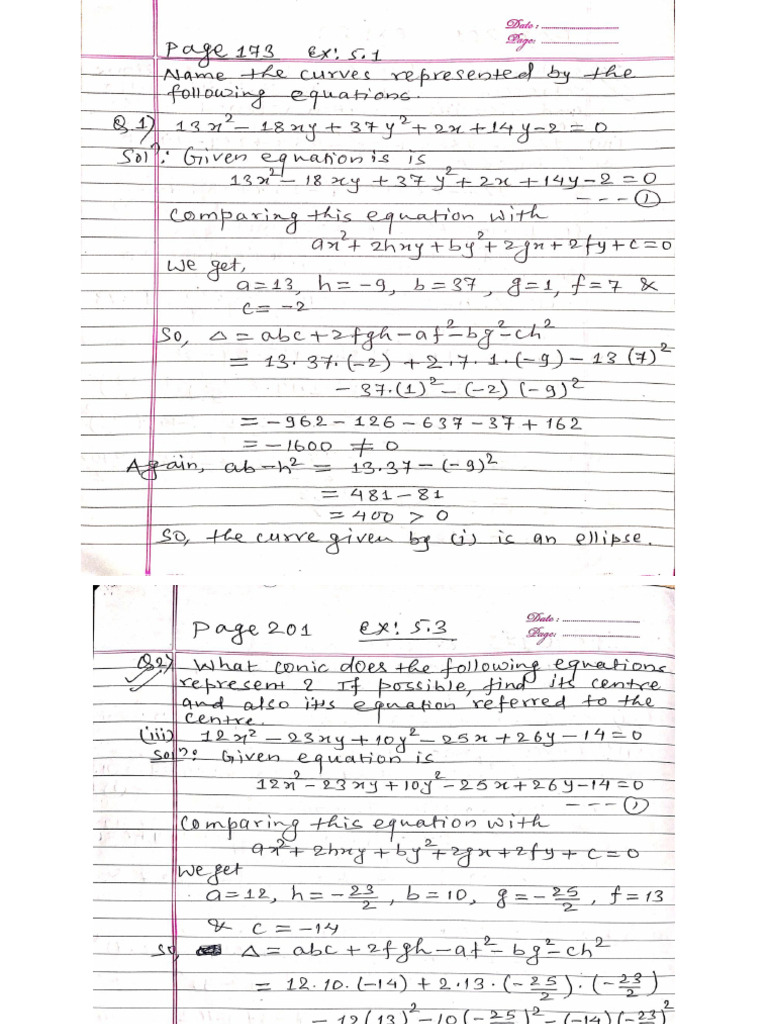 Date :
Page:
Page 173 Ex: 5.1
Name the curves represented by the
following equations.
Q.1) 13x² – 18xy + 37y² + 2x + 14y – 2 = 0
Solⁿ: Given equation is is
13x² – 18xy + 37y² + 2x + 14y – 2 = 0
– – – ①
Comparing this equation with
ax² + 2hxy + by² + 2gx + 2fy + c = 0
We get,
a = 13, h = –9, b = 37, g = 1, f = 7 &
c = –2
So, Δ = abc + 2fgh – af² – bg² – ch²
= 13.37.(–2) + 2.7.1.(–9) – 13(7)²
– 37.(1)² – (–2)(–9)²
= –962 – 126 – 637 – 37 + 162
= –1600 ≠ 0
Again, ab – h² = 13.37 – (–9)²
= 481 – 81
= 400 > 0
So, the curve given by (i) is an ellipse.
Date :
Page:
Page 201 Ex: 5.3
Q2) What conic does the following equations
represent? If possible, find its centre
and also its equation referred to the
centre.
(iii) 12x² – 23xy + 10y² – 25x + 26y – 14 = 0
Solⁿ: Given equation is
12x² – 23xy + 10y² – 25x + 26y – 14 = 0
– – – ①
Comparing this equation with
ax² + 2hxy + by² + 2gx + 2fy + c = 0
We get
a = 12, h = –23/2, b = 10, g = –25/2, f = 13
& c = –14
So, Δ = abc + 2fgh – af² – bg² – ch²
= 12.10.(–14) + 2.13.(–25/2).(–23/2)
– 12(13)² – 10(–25/2)² – (–14)(–23/2)²